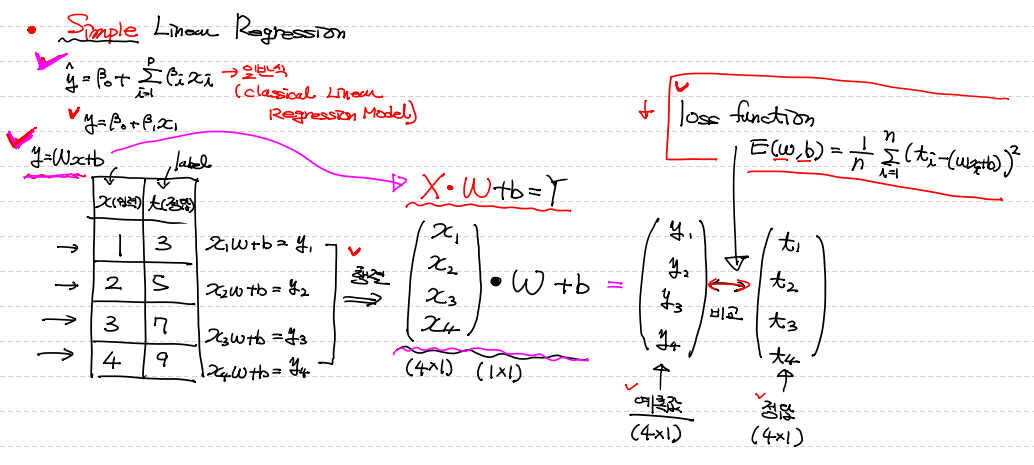 • Simple Linear Regression
ŷ = β₀ + Σᵢ₌₁ᵖ βᵢxᵢ → 일반식
(Classical Linear
Regression Model)
y = β₀ + β₁x₁
y = Wx + b
label
x(입력) t(정답)
1 3 x₁w + b = y₁
2 5 x₂w + b = y₂
3 7 x₃w + b = y₃
4 9 x₄w + b = y₄
행렬 ⇒
X • W + b = Y
(x₁ x₂ x₃ x₄) • W + b = (y₁ y₂ y₃ y₄) ↔ (t₁ t₂ t₃ t₄)
비교
(4×1) (1×1)
예측값
(4×1)
정답
(4×1)
loss function
E(w, b) = 1/n Σᵢ₌₁ⁿ (tᵢ - (wxᵢ + b))²